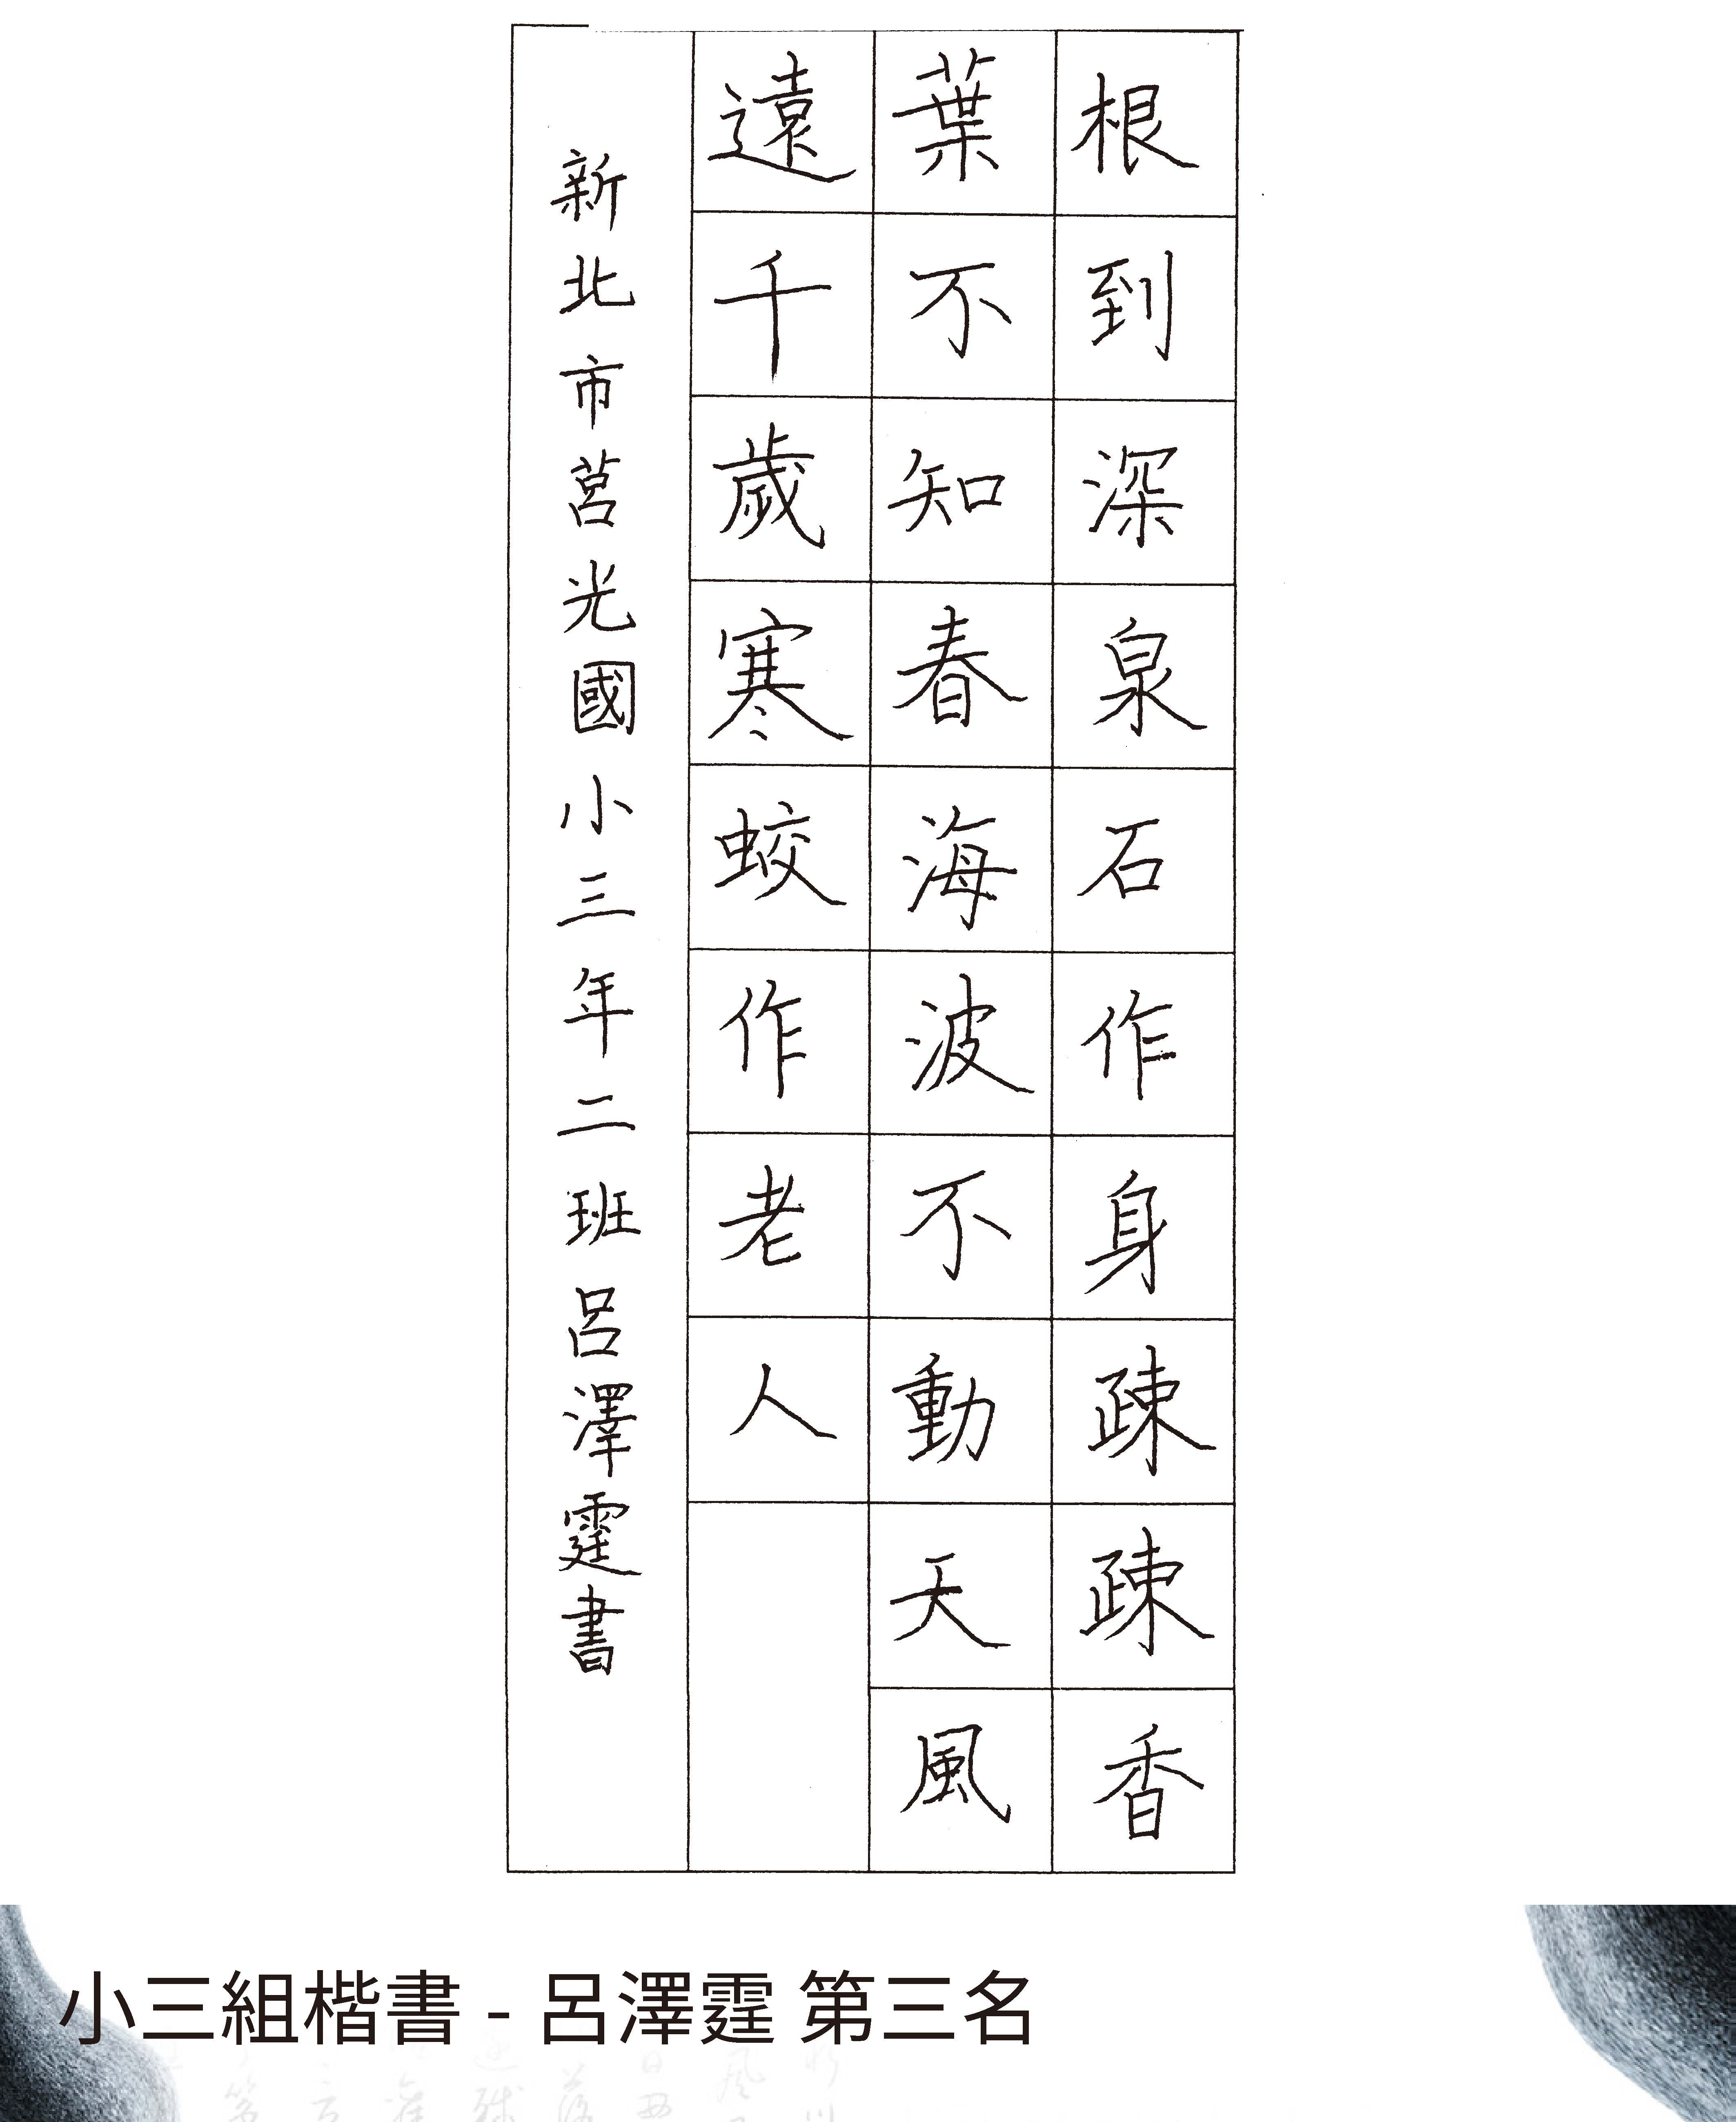 根到深泉石作身疎疎香
葉不知春海波不動天風
遠千歲寒蛟作老人
新北市莒光國小三年二班呂澤霆書
小三組楷書 - 呂澤霆 第三名